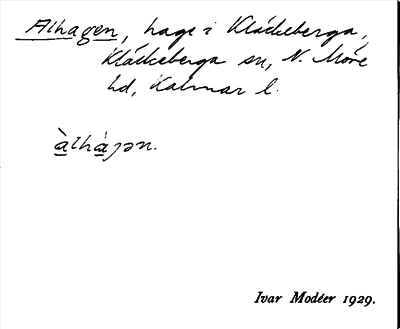 Alhagen, hage i Kläckeberga,
Kläckeberga sn, N. Möre
hd, Kalmar l.
àlhágən.
Ivar Modéer 1929.